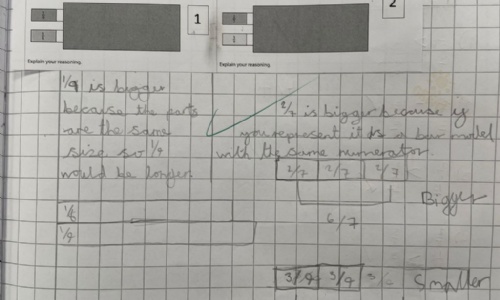 1
2
Explain your reasoning.
Explain your reasoning.
1/9 is bigger
because the parts
are the same
size so 1/9
would be longer.
2/7 is bigger because if
you represent it as a bar model
with the same numerator
2/7 2/7 2/7
Bigger
6/7
1/8
1/9
3/9 3/9
Smaller